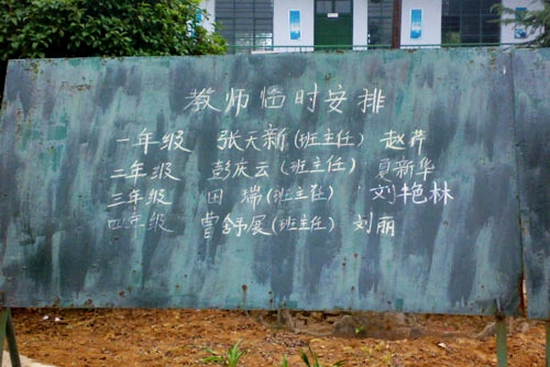 教师临时安排
一年级 张天新(班主任) 赵芹
二年级 彭庆云(班主任) 夏新华
三年级 田瑞(班主任) 刘艳林
四年级 曾舒展(班主任) 刘丽